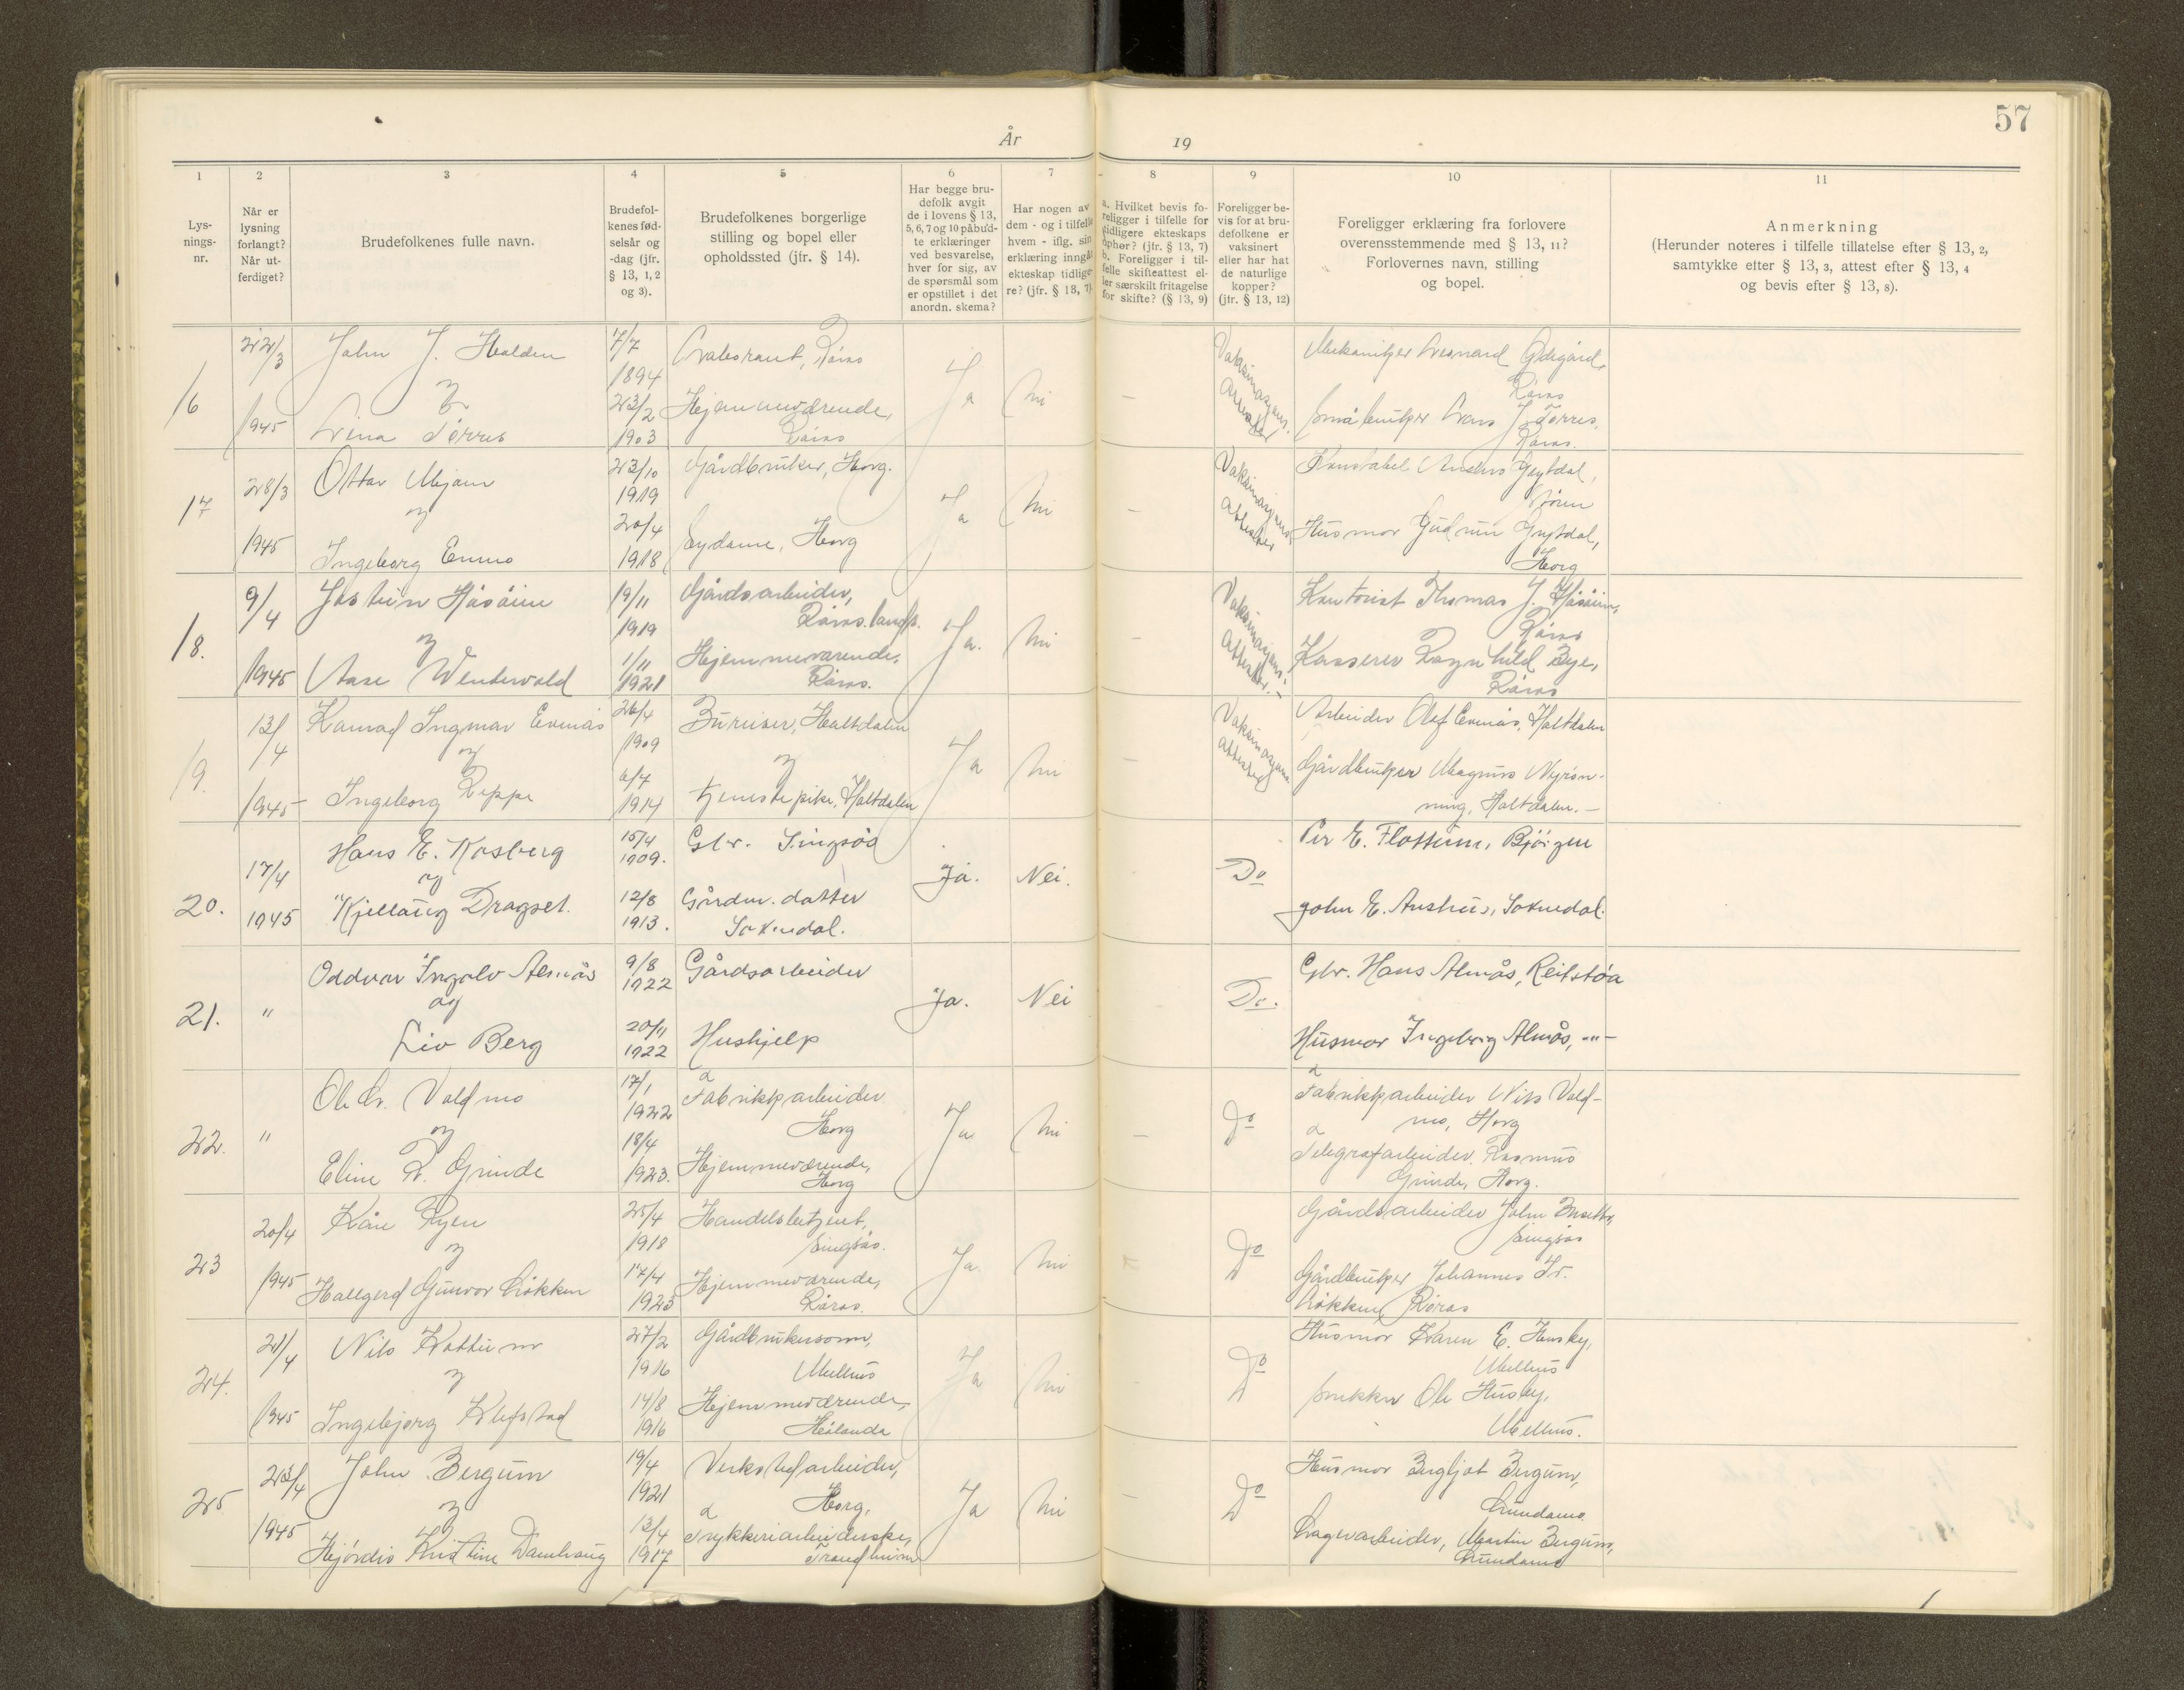 57
År 19
1
Lys-
nings-
nr.
2
Når er
lysning
forlangt?
Når ut-
ferdiget?
3
Brudefolkenes fulle navn.
4
Brudefol-
kenes fød-
selsår og
-dag (jfr.
§ 13, 1, 2
og 3).
5
Brudefolkenes borgerlige
stilling og bopel eller
opholdssted (jfr. § 14).
6
Har begge bru-
defolk avgit
de i lovens § 13,
5, 6, 7 og 10 påbud-
te erklæringer
ved besvarelse,
hver for sig, av
de spørsmål som
er opstillet i det
anordn. skema?
7
Har nogen av
dem - og i tilfelle
hvem - iflg. sin
erklæring inngåt
ekteskap tidlige-
re? (jfr. § 13, 7)
8
a. Hvilket bevis fo-
religger i tilfelle for
tidligere ekteskaps
ophør? (jfr. § 13, 7)
b. Foreligger i til-
felle skifteattest el-
ler særskilt fritagelse
for skifte? (§ 13, 9)
9
Foreligger be-
vis for at bru-
defolkene er
vaksinert
eller har hat
de naturlige
kopper?
(jfr. § 13, 12)
10
Foreligger erklæring fra forlovere
overensstemmende med § 13, 11?
Forlovernes navn, stilling
og bopel.
11
Anmerkning
(Herunder noteres i tilfelle tillatelse efter § 13, 2,
samtykke efter § 13, 3, attest efter § 13, 4
og bevis efter § 13, 8).
16
22/3
1945
John J. Halden
og
Lina Tørres
7/7
1894
23/2
1903
Laborant, Røros
Hjemmeværende,
Røros
Ja
Nei
—
Vaksinasjons-
attester
Mekaniker Leonard Ødegård,
Røros
Småbruker Lars J. Tørres,
Røros.
17
28/3
1945
Ottar Mjøen
og
Ingeborg Enmo
23/10
1919
20/4
1918
Gårdbruker, Horg.
Sydame, Horg
Ja
Nei
—
Vaksinasjons-
attester
Konstabel Anders Gyltdal,
Støren
Husmor Gudrun Gyltdal,
Horg
18.
9/4
1945
Jostein Håsåen
og
Aase Wintervold
19/11
1919
1/11
1921
Gårdsarbeider,
Røros landss.
Hjemmeværende,
Røros.
Ja.
Nei
—
Vaksinasjons-
attester.-
Kontorist Thomas J. Håsåen,
Røros
Kasserer Ragnhild Bye,
Røros
19.
13/4
1945
Konrad Ingmar Evenås
og
Ingeborg Reppe
26/4
1909
6/4
1914
Bureiser, Haltdalen
og
tjenestepike, Haltdalen
Ja
Nei
—
Vaksinasjons-
attester
Arbeider Olaf Evenås, Haltdalen
Gårdbruker Magnus Nyrøn-
ning, Haltdalen.-
20.
17/4
1945
Hans E. Kosberg
og
Kjellaug Dragset.
15/4
1909.
12/8
1913.
Gbr. Singsås
Gårdm. datter
Soknedal.
Ja.
Nei.
Do
Per E. Flottum, Bjørgen
John E. Aushus, Soknedal.
21.
"
Oddvar Ingolv Almås
og
Liv Berg
9/8
1922
20/11
1922
Gårdsarbeider
Hushjelp
Ja.
Nei
Do.
Gbr. Hans Almås, Reitstøa
Husmor Ingeborg Almås, -"-
22.
"
Ole Kr. Voldmo
og
Eline R. Grinde
17/1
1922
18/4
1923.
Fabrikkarbeider
Horg
Hjemmeværende,
Horg
Ja
Nei
—
Do
Fabrikkarbeider Nils Vold-
mo, Horg
Telegrafarbeider Rasmus
Grinde, Horg.
23
20/4
1945
Kåre Ryen
og
Hallgerd Gunvor Løkken
25/4
1918
17/4
1923
Handelsbetjent,
Singsås.
Hjemmeværende,
Røros.
Ja
Nei
Do
Gårdsarbeider John
Singsås
Gårdbruker Johannes Kr.
Løkken, Røros
24.
21/4
1945
Nils Kattem
og
Ingebjørg Klefstad
27/2
1916
14/8
1916
Gårdbrukersønn,
Melhus
Hjemmeværende,
Hølonda
Ja
Nei
Do
Husmor Karen E. Husby,
Melhus
Snekker Ole Husby,
Melhus.
25
23/4
1945
John Bergum
og
Hjørdis Kristine Damhaug
19/4
1921
13/4
1917
Verkstedarbeider,
Horg,
Trykkeriarbeiderske,
Trondheim
Ja
Nei
—
Do
Husmor Bergljot Bergum,
Lundamo
Lagerarbeider, Martin Bergum,
Lundamo